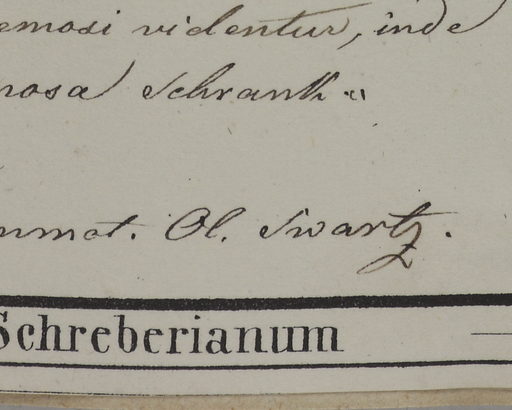 emosi videntur, inde
nosa Schrank "
nmot. Ol. Swartz.
Schreberianum